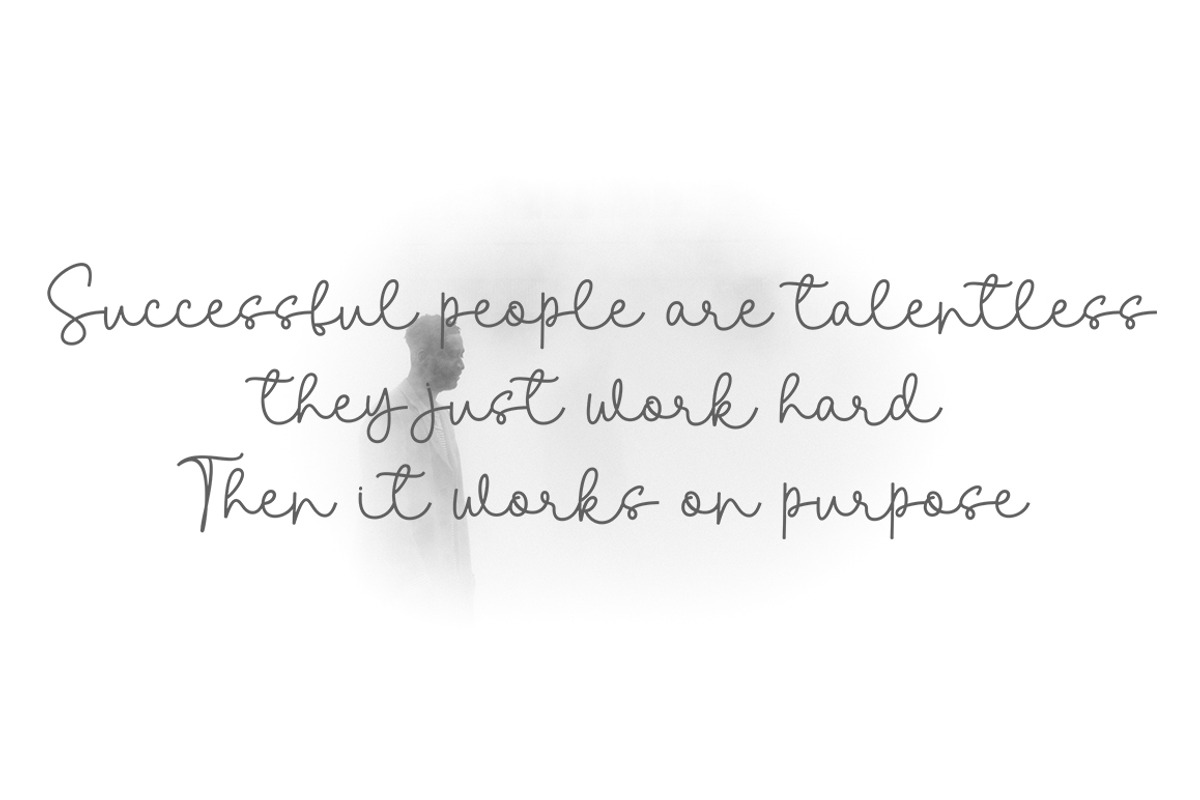 Successful people are talentless
they just work hard
Then it works on purpose